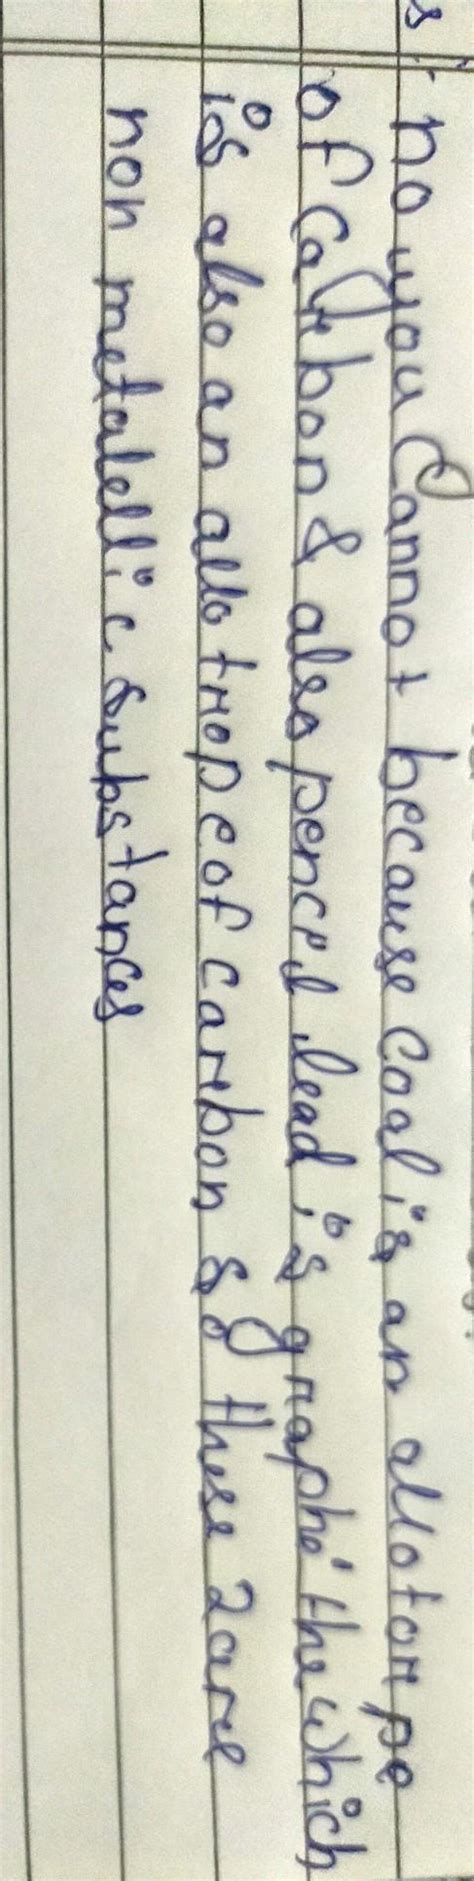 no you Cannot because Coal is an allotorpe
of Carbon & also pencil lead is graphe'the which
is also an allotrope of carbon & these 2 are
non metalellic substances